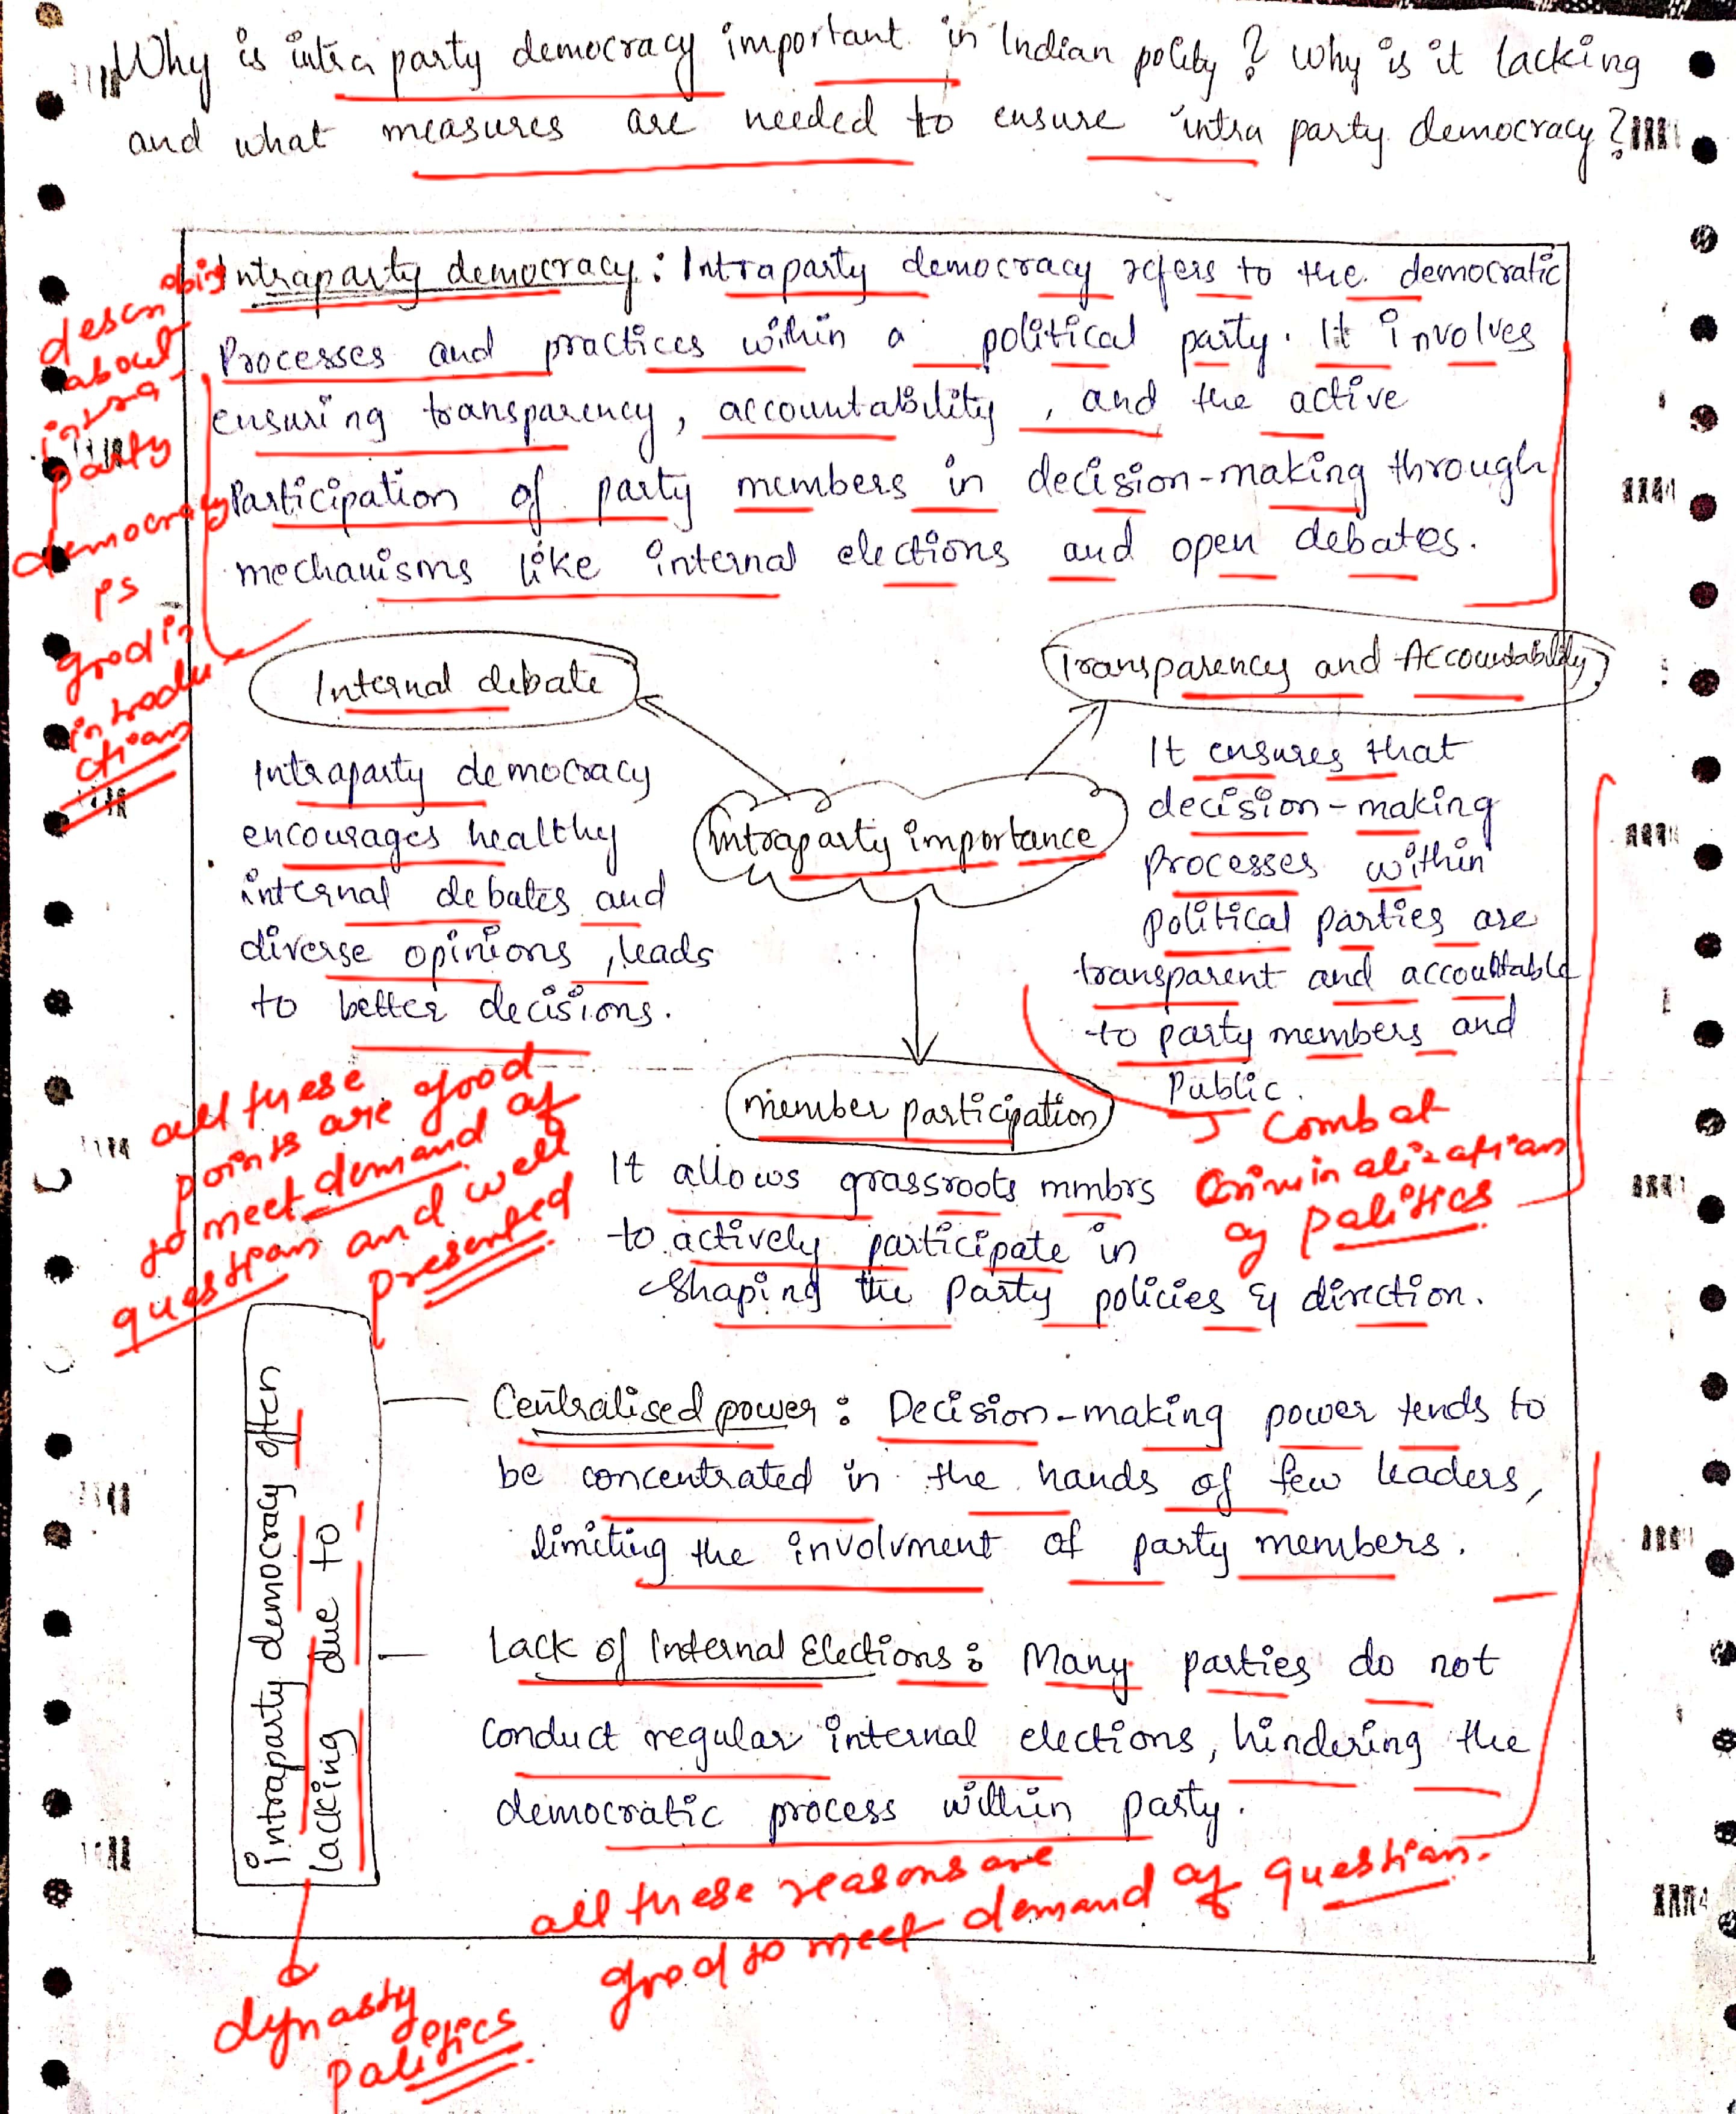 Why is intra party democracy important in Indian polity? Why is it lacking
and what measures are needed to ensure intra party democracy?
Intraparty democracy: Intraparty democracy refers to the democratic
Processes and practices within a political party. It involves
ensuring transparency, accountability, and the active
Participation of party members in decision-making through
mechanisms like internal elections and open debates.
describing
about
intra-
party
democracy
is
good in
introdu
ction
Internal debate
Intraparty democracy
encourages healthy
internal debates and
diverse opinions, leads
to better decisions.
Intraparty importance
Transparency and Accountability
It ensures that
decision-making
Processes within
political parties are
transparent and accountable
to party members and
Public.
Combat
Criminalization
of Politics
member participation
It allows grassroots mmbrs
to actively participate in
shaping the Party policies & direction.
all these
points are good
to meet demand of
question and well
presented
intraparty democracy often
lacking due to
Centralised power: Decision-making power tends to
be concentrated in the hands of few leaders,
limiting the involvment of party members.
Lack of Internal Elections: Many parties do not
conduct regular internal elections, hindering the
democratic process within party.
all these reasons are
good to meet demand of question.
dynasty
politics